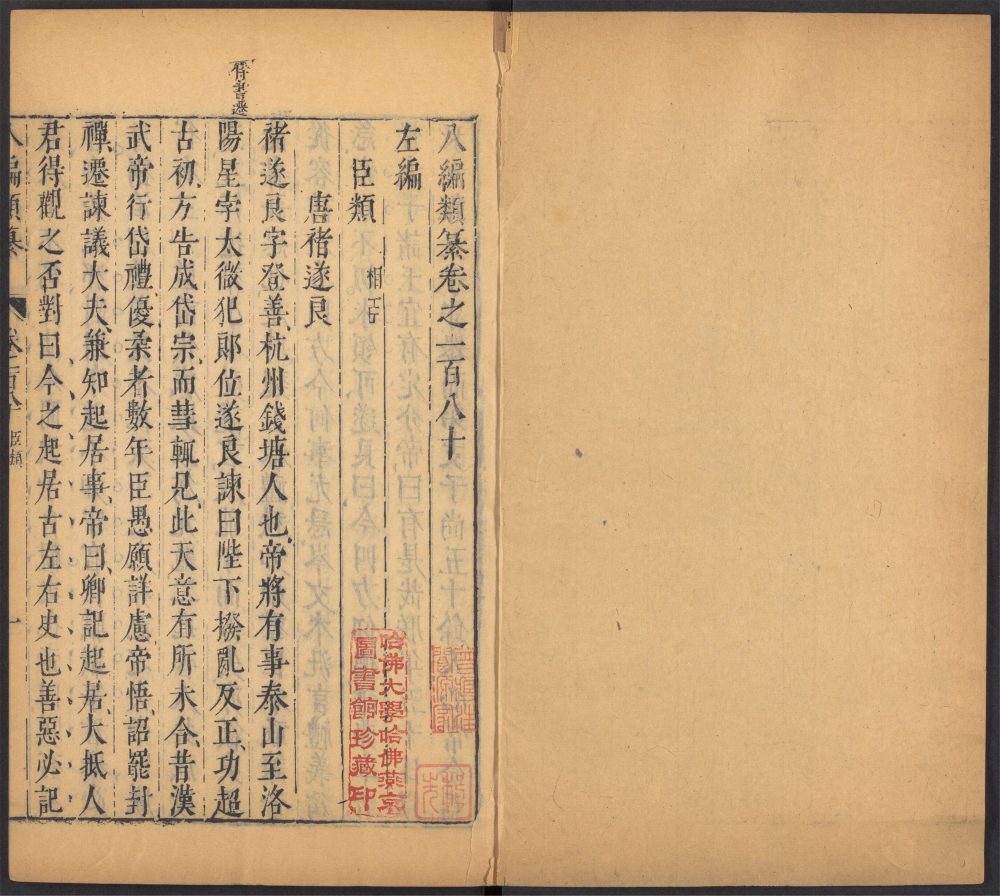 八編類纂卷之一百八十
左編
臣類 相
唐褚遂良
褚遂良字登善杭州錢塘人也帝將有事泰山至洛
陽星孛太微犯郎位遂良諫曰陛下撥亂反正功超
古初方告成岱宗而彗輒見此天意有所未合昔漢
武帝行岱禮優柔者數年臣愚願詳慮帝悟詔罷封
禪遷諫議大夫兼知起居事帝曰卿記起居大抵人
君得觀之否對曰今之起居古左右史也善惡必記
八編類纂 卷一百八十 臣類 一
哈佛大學哈佛燕京
圖書館珍藏印